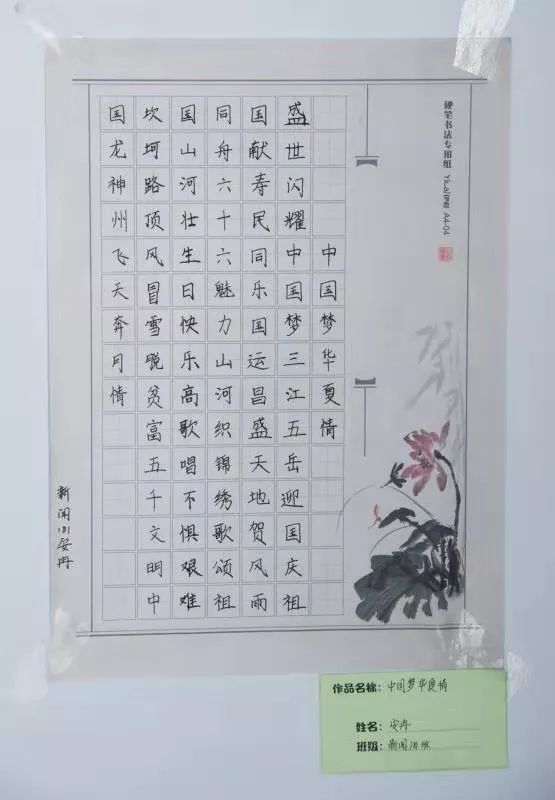 硬笔书法专用纸 A4-04
中国梦华夏情
盛世闪耀中国梦三江五岳迎国庆祖
国献寿民同乐国运昌盛天地贺风雨
同舟六十六魅力山河织锦绣歌颂祖
国山河壮生日快乐高歌唱不惧艰难
坎坷路顶风冒雪脱贫富五千文明中
国龙神州飞天奔月情
新闻 安冉
作品名称：中国梦华夏情
姓名：安冉
班级：新闻 班